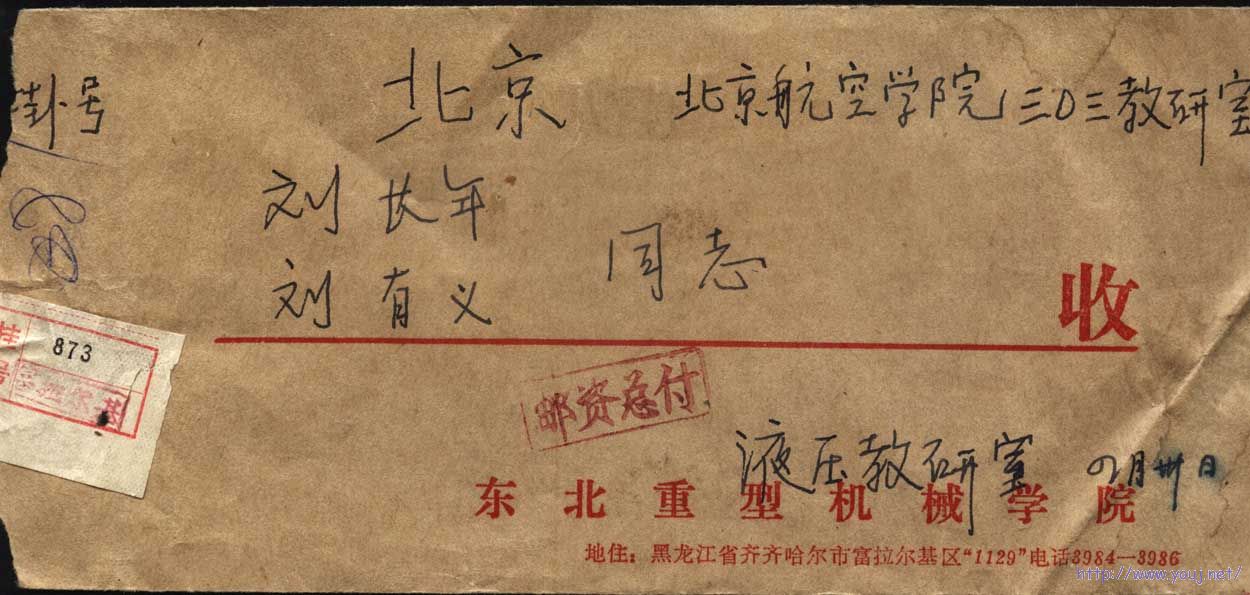 挂号
北京 北京航空学院1303教研室
刘长年
刘有义 同志 收
挂号 873
富拉尔基
邮资总付
液压教研室 四月卅日
东北重型机械学院
地住：黑龙江省齐齐哈尔市富拉尔基区“1129”电话3984—3986
http://www.youj.net/